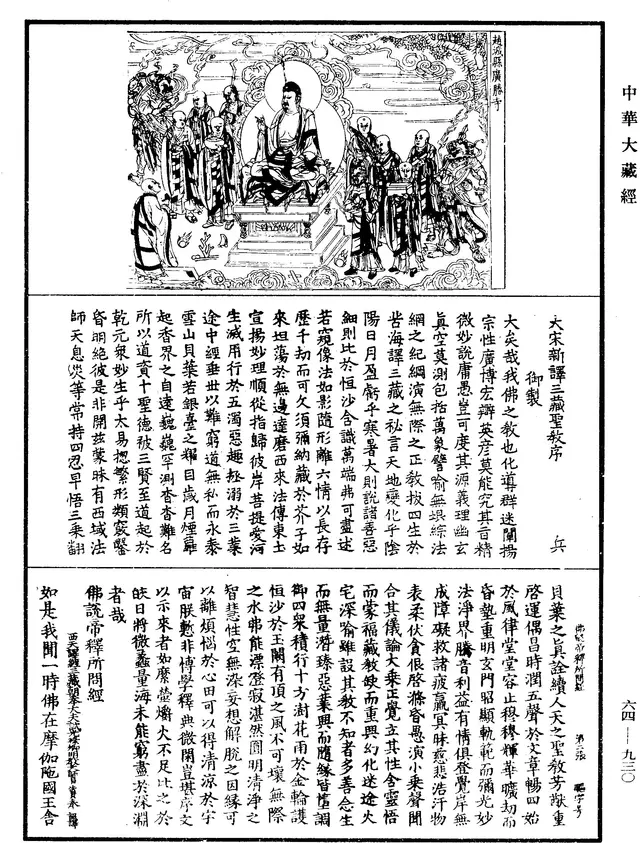 中華大藏經
六四—九三〇
趙城縣廣勝寺
大宋新譯三藏聖教序　兵
御製
大矣哉我佛之教也化導群迷闡揚
宗性廣博宏辯英彥莫能究其旨精
微妙說庸愚豈可度其源義理幽玄
真空莫測包括萬象譬喻無垠綜法
網之紀綱演無際之正教拔四生於
苦海譯三藏之秘言天地變化乎陰
陽日月盈虧乎寒暑大則說諸善惡
細則比於恒沙含識萬端弗可盡述
若窺像法如影隨形離六情以長存
歷千劫而可久須彌納藏於芥子如
來坦蕩於無邊達磨西來法傳東土
宣揚妙理順從指歸彼岸菩提愛河
生滅用行於五濁惡趣拯溺於三業
途中經垂世以難窮道無私而永泰
雪山貝葉若銀臺之耀目歲月煙蘿
起香界之自遠巍巍罕測杳杳難名
所以道資十聖德被三賢至道起於
乾元眾妙生乎太易揔繁形類竅鑿
昏明絕彼是非開茲蒙昧有西域法
師天息災等常持四忍早悟三乘翻
貝葉之真詮續人天之聖教芳猷重
啓運偶昌時潤五聲於文章暢四始
於風律堂堂容止穆穆輝華曠劫而
昏墊重明玄門昭顯軌範而彌光妙
法淨界騰音利益有情俱登覺岸無
成障礙救諸疲羸冥昧慈悲浩汗物
表柔伏貪佷啓滌昏愚演小乘聲聞
合其儀論大乘正覺立其性含靈悟
而蒙福藏教缺而重興幻化迷途火
宅深喻雖設其教不知者多善念生
而無量潛臻惡業興而隨緣皆墮調
御四眾積行十方澍花雨於金輪護
恒沙於玉闕有頂之風不可壞無際
之水弗能漂澄寂湛然圓明清淨之
智慧性空無染妄想解脫之因緣可
以離煩惱於心田可以得清涼於宇
宙朕慙非博學釋典微閑豈堪序文
以示來者如縻螢爝火不足比之於
皎日將微蠡量海未能窮盡於深淵
者哉
佛說帝釋所問經
如是我聞一時佛在摩伽陁國王舍